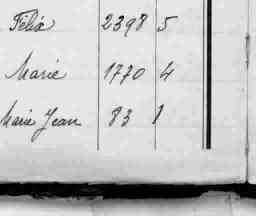 Félix 2398 5
Marie 1770 4
Marie Jean 83 1